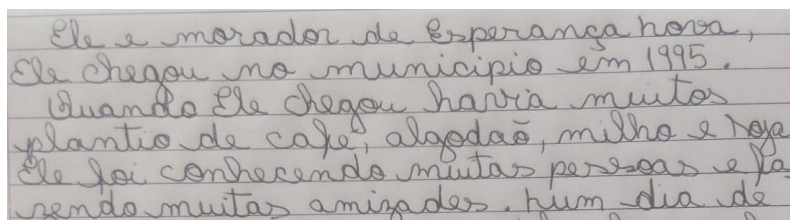 Ele e morador de Esperança nova,
Ele chegou no municipio em 1995.
Quando Ele chegou havia muitos
plantio de cafe, algodaõ, milho e soja
Ele foi conhecendo muitas pessoas e fa
sendo muitas amizades. hum dia de